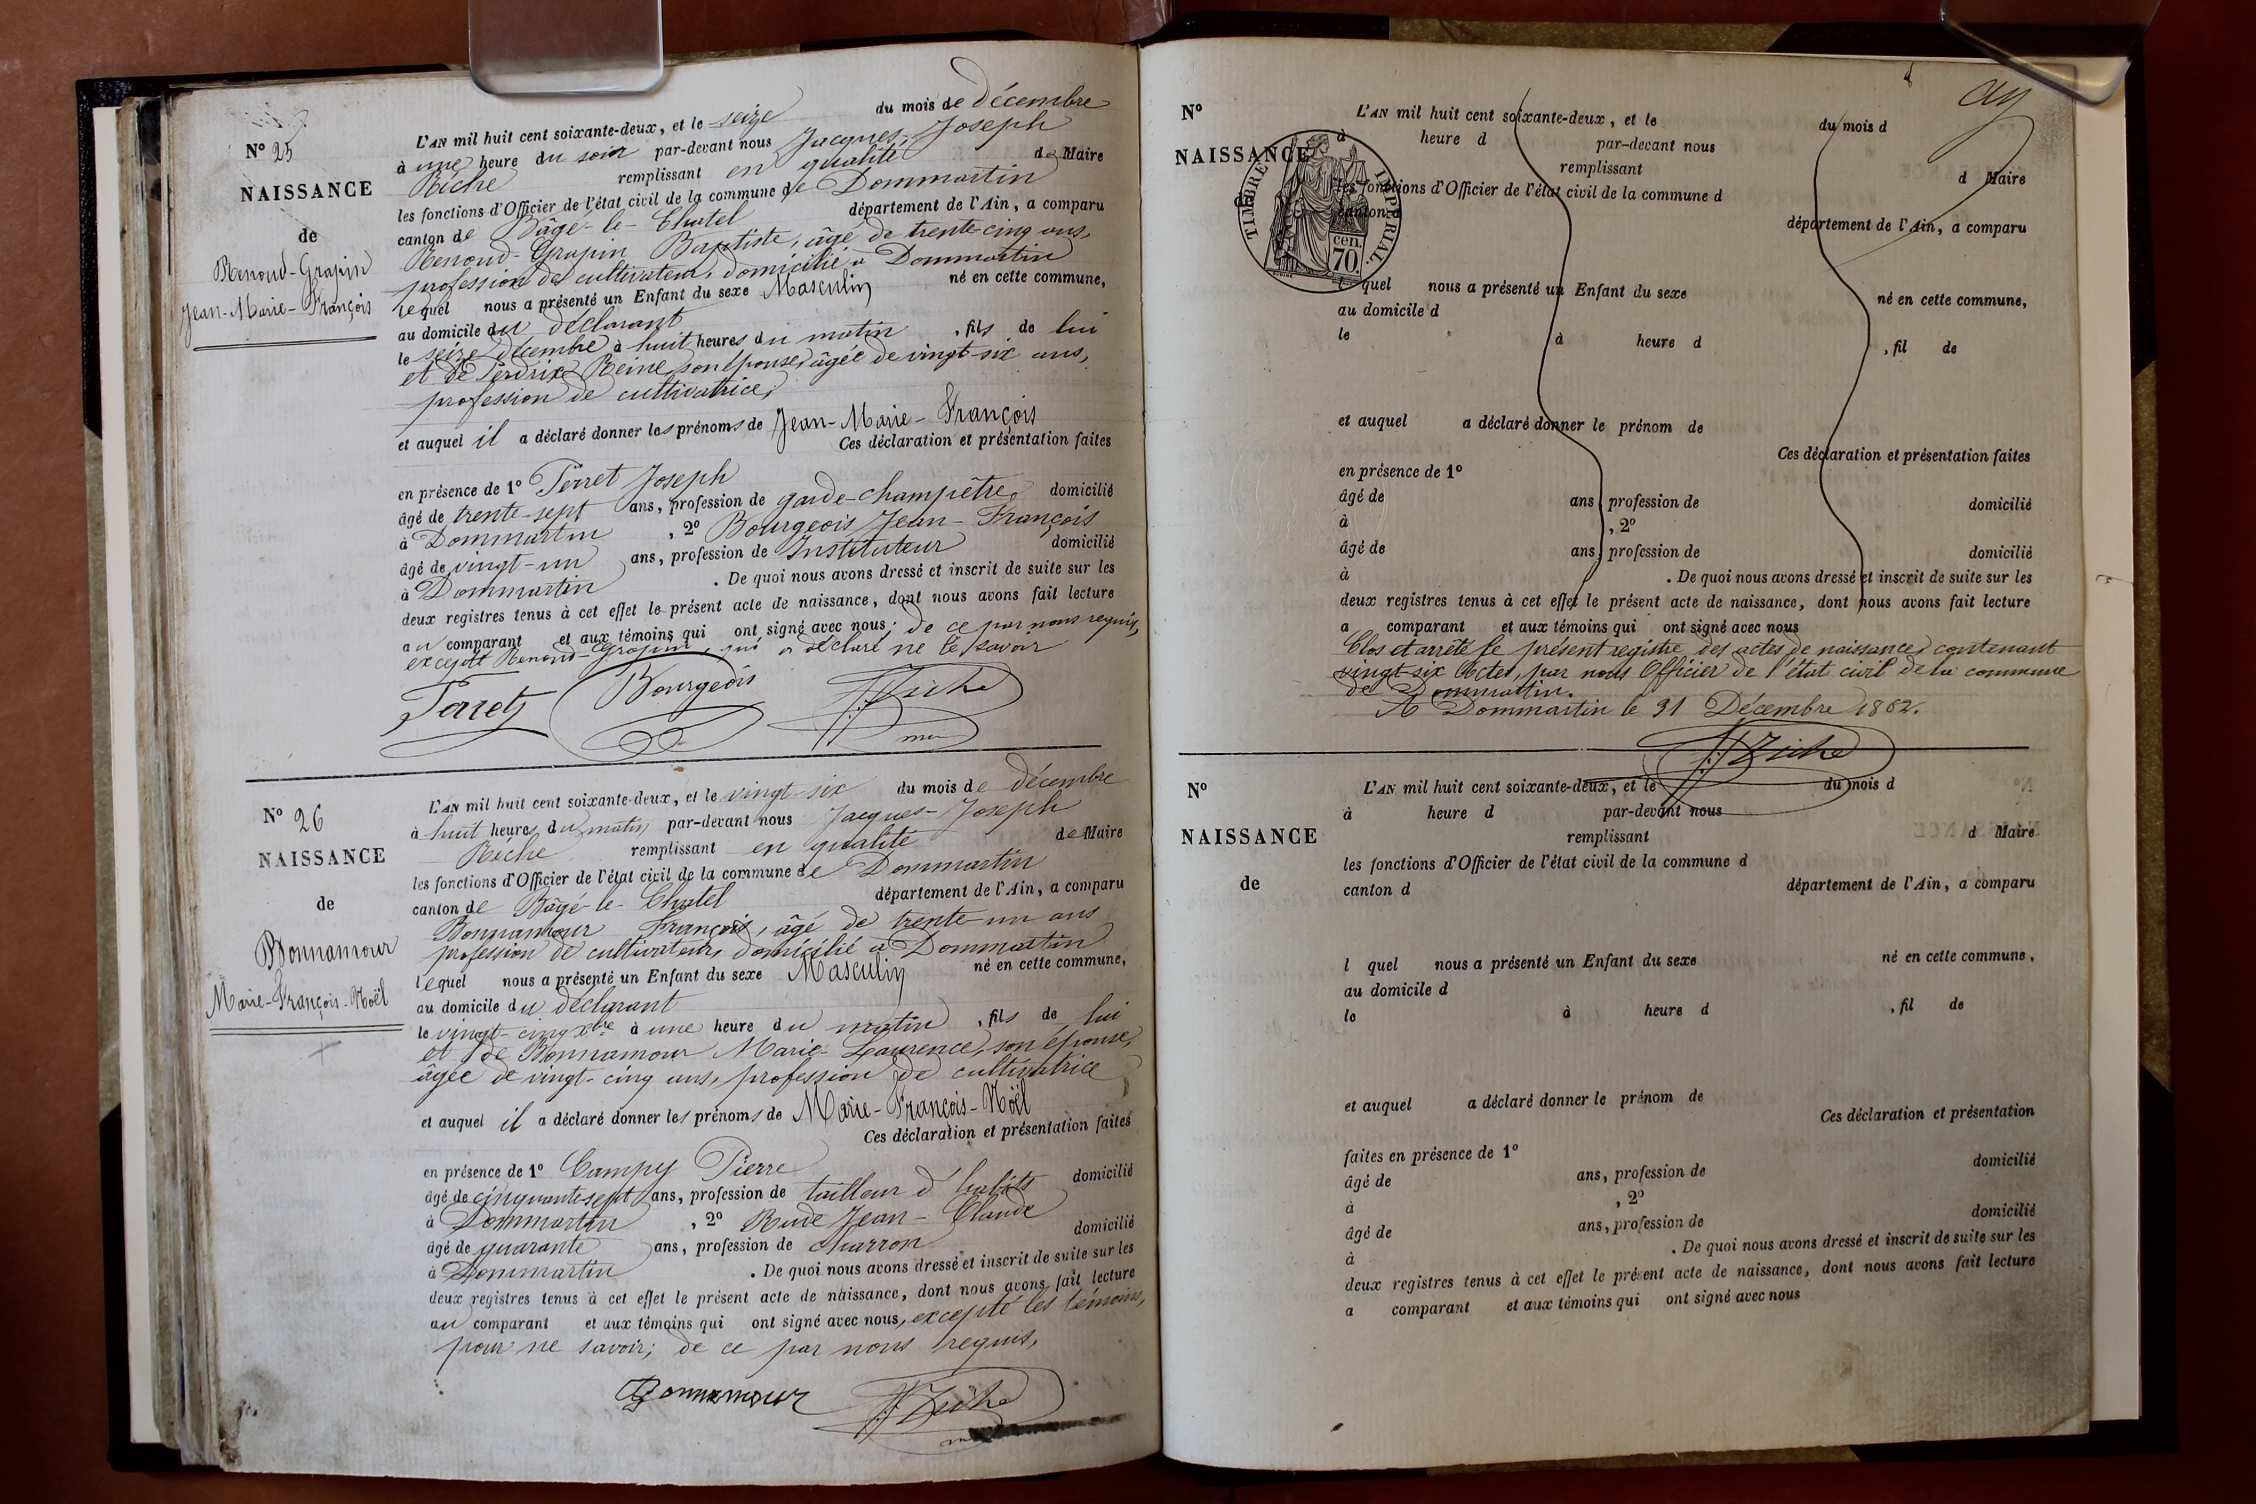 N° 25
NAISSANCE
de
Renoud-Grapin
Jean-Marie-François
L'AN mil huit cent soixante-deux, et le seize du mois de décembre
à une heure du soir par-devant nous Jacques-Joseph
Riche remplissant en qualité de Maire
les fonctions d'Officier de l'état civil de la commune de Dommartin
canton de Bâgé-le-Chatel département de l'Ain, a comparu
Renoud-Grapin Baptiste, âgé de trente-cinq ans,
profession de cultivateur, domicilié à Dommartin
lequel nous a présenté un Enfant du sexe Masculin né en cette commune,
au domicile du déclarant
le seize décembre à huit heures du matin, fils de lui
et de Perdrix Reine, son épouse, âgée de vingt-six ans,
profession de cultivatrice,
et auquel il a déclaré donner les prénoms de Jean-Marie-François
Ces déclaration et présentation faites
en présence de 1° Perret Joseph
âgé de trente-sept ans, profession de garde-champêtre, domicilié
à Dommartin, 2° Bourgeois Jean-François
âgé de vingt-un ans, profession de Instituteur domicilié
à Dommartin. De quoi nous avons dressé et inscrit de suite sur les
deux registres tenus à cet effet le présent acte de naissance, dont nous avons fait lecture
au comparant et aux témoins qui ont signé avec nous; de ce par nous requis,
excepté Renoud-Grapin, qui a déclaré ne le savoir
Perret Bourgeois J. J. Riche
N° 26
NAISSANCE
de
Bonnamour
Marie-François-Noël
L'AN mil huit cent soixante-deux, et le vingt-six du mois de décembre
à huit heures du matin par-devant nous Jacques-Joseph
Riche remplissant en qualité de Maire
les fonctions d'Officier de l'état civil de la commune de Dommartin
canton de Bâgé-le-Chatel département de l'Ain, a comparu
Bonnamour François, âgé de trente-un ans
profession de cultivateur, domicilié à Dommartin
lequel nous a présenté un Enfant du sexe Masculin né en cette commune,
au domicile du déclarant
le vingt-cinq Xbre à une heure du matin, fils de lui
et de Bonnamour Marie-Laurence, son épouse,
âgée de vingt-cinq ans, profession de cultivatrice
et auquel il a déclaré donner les prénoms de Marie-François-Noël
Ces déclaration et présentation faites
en présence de 1° Campy Pierre
âgé de cinquante-sept ans, profession de tailleur d'habits domicilié
à Dommartin, 2° Rude Jean-Claude
âgé de quarante ans, profession de charron domicilié
à Dommartin. De quoi nous avons dressé et inscrit de suite sur les
deux registres tenus à cet effet le présent acte de naissance, dont nous avons fait lecture
au comparant et aux témoins qui ont signé avec nous, excepté les témoins,
pour ne savoir; de ce par nous requis,
Bonnamour J. J. Riche
N°
NAISSANCE
TIMBRE IMPÉRIAL.
cen.
70.
L'AN mil huit cent soixante-deux, et le du mois d
à heure d par-devant nous
remplissant d Maire
les fonctions d'Officier de l'état civil de la commune d
canton d département de l'Ain, a comparu
l quel nous a présenté un Enfant du sexe né en cette commune,
au domicile d
le à heure d , fil de
et auquel a déclaré donner le prénom de
Ces déclaration et présentation faites
en présence de 1°
âgé de ans, profession de domicilié
à , 2°
âgé de ans, profession de domicilié
à . De quoi nous avons dressé et inscrit de suite sur les
deux registres tenus à cet effet le présent acte de naissance, dont nous avons fait lecture
a comparant et aux témoins qui ont signé avec nous
Clos et arrêté le présent registre des actes de naissance, contenant
vingt-six Actes, par nous Officier de l'état civil de la commune
de Dommartin.
A Dommartin le 31 Décembre 1862.
J. J. Riche
N°
NAISSANCE
de
L'AN mil huit cent soixante-deux, et le du mois d
à heure d par-devant nous
remplissant d Maire
les fonctions d'Officier de l'état civil de la commune d
canton d département de l'Ain, a comparu
l quel nous a présenté un Enfant du sexe né en cette commune,
au domicile d
le à heure d , fil de
et auquel a déclaré donner le prénom de
Ces déclaration et présentation
faites en présence de 1°
âgé de ans, profession de domicilié
à , 2°
âgé de ans, profession de domicilié
à . De quoi nous avons dressé et inscrit de suite sur les
deux registres tenus à cet effet le présent acte de naissance, dont nous avons fait lecture
a comparant et aux témoins qui ont signé avec nous